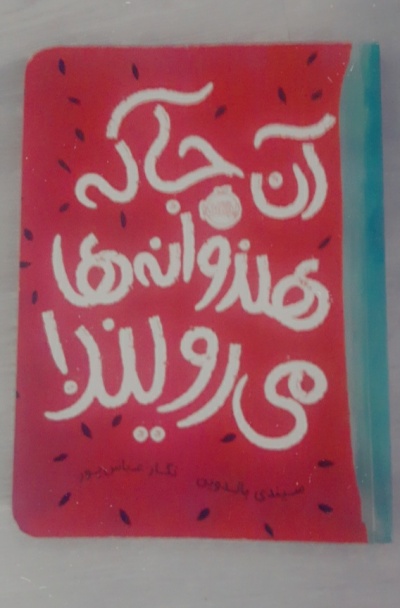 آن جا که
هندوانه‌ها
می‌رویند!
سیندی بالدوین نگار عباس‌پور